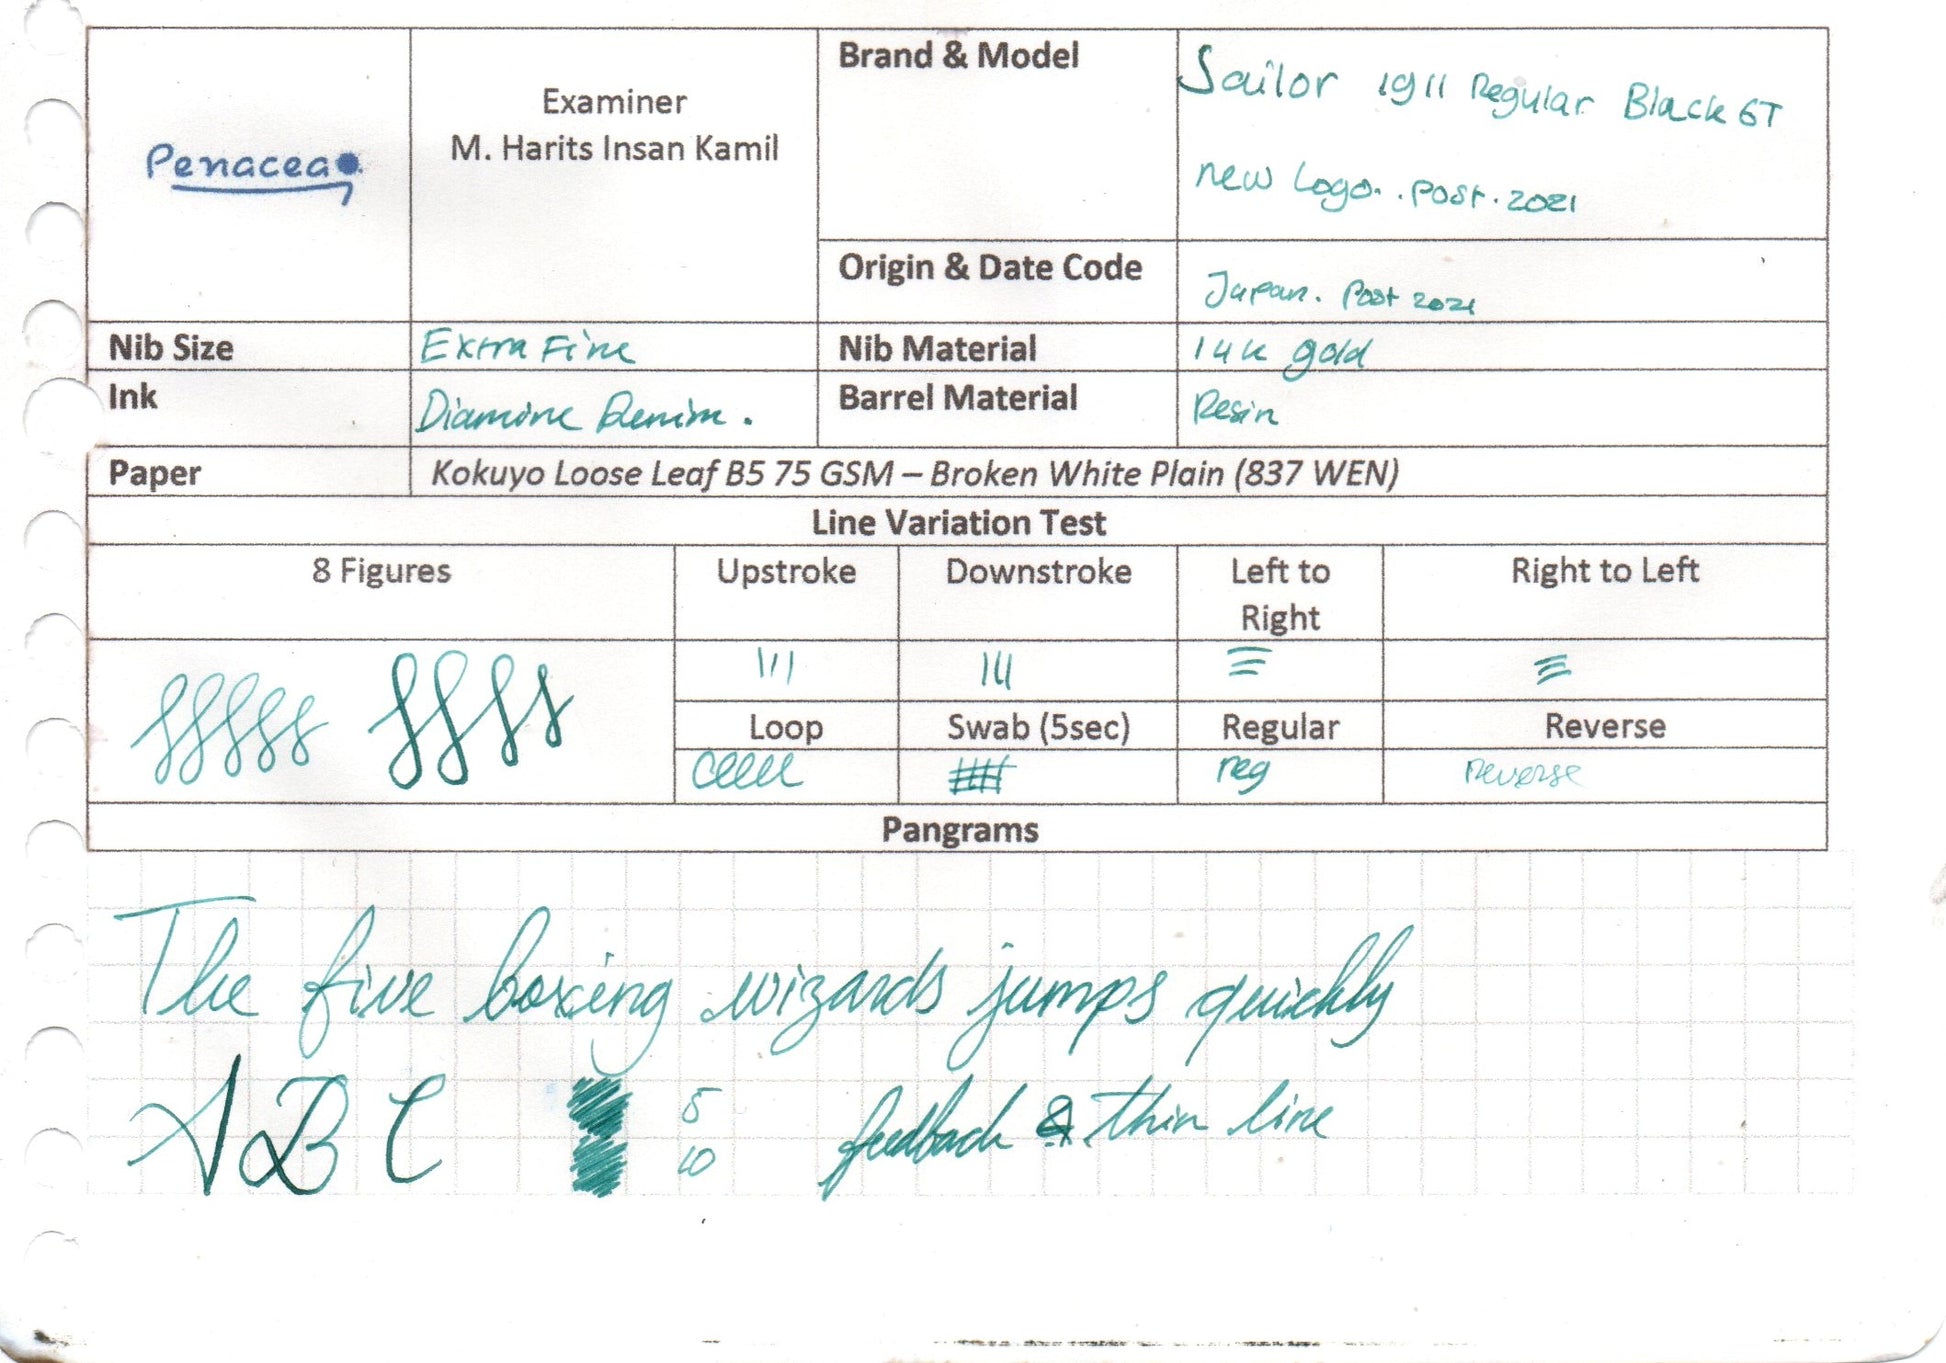 Penacea
Examiner
M. Harits Insan Kamil
Brand & Model
Sailor 1911 Regular Black GT
new Logo. . post. 2021
Origin & Date Code
Japan. Post 2021
Nib Size
Extra Fine
Nib Material
14k gold
Ink
Diamine Denim.
Barrel Material
Resin
Paper
Kokuyo Loose Leaf B5 75 GSM – Broken White Plain (837 WEN)
Line Variation Test
8 Figures
Upstroke
Downstroke
Left to
Right
Right to Left
Loop
Swab (5sec)
Regular
Reverse
reg
Reverse
Pangrams
The five boxing wizards jumps quickly
A B C
5
10
feedback & thin line